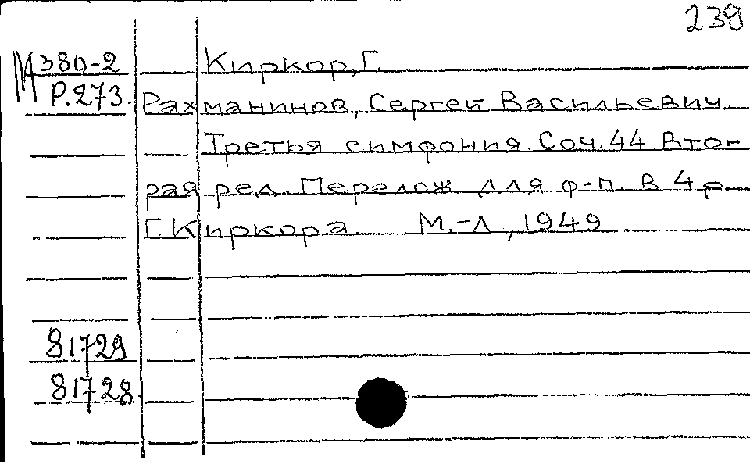 239
М 380-2 Киркор, Г.
Р.273. Рахманинов, Сергей Васильевич
Третья симфония. Соч. 44 Вто-
рая ред. Перелож для ф-п. в 4 р.
Г. Киркора М.-Л, 1949
81729
81728